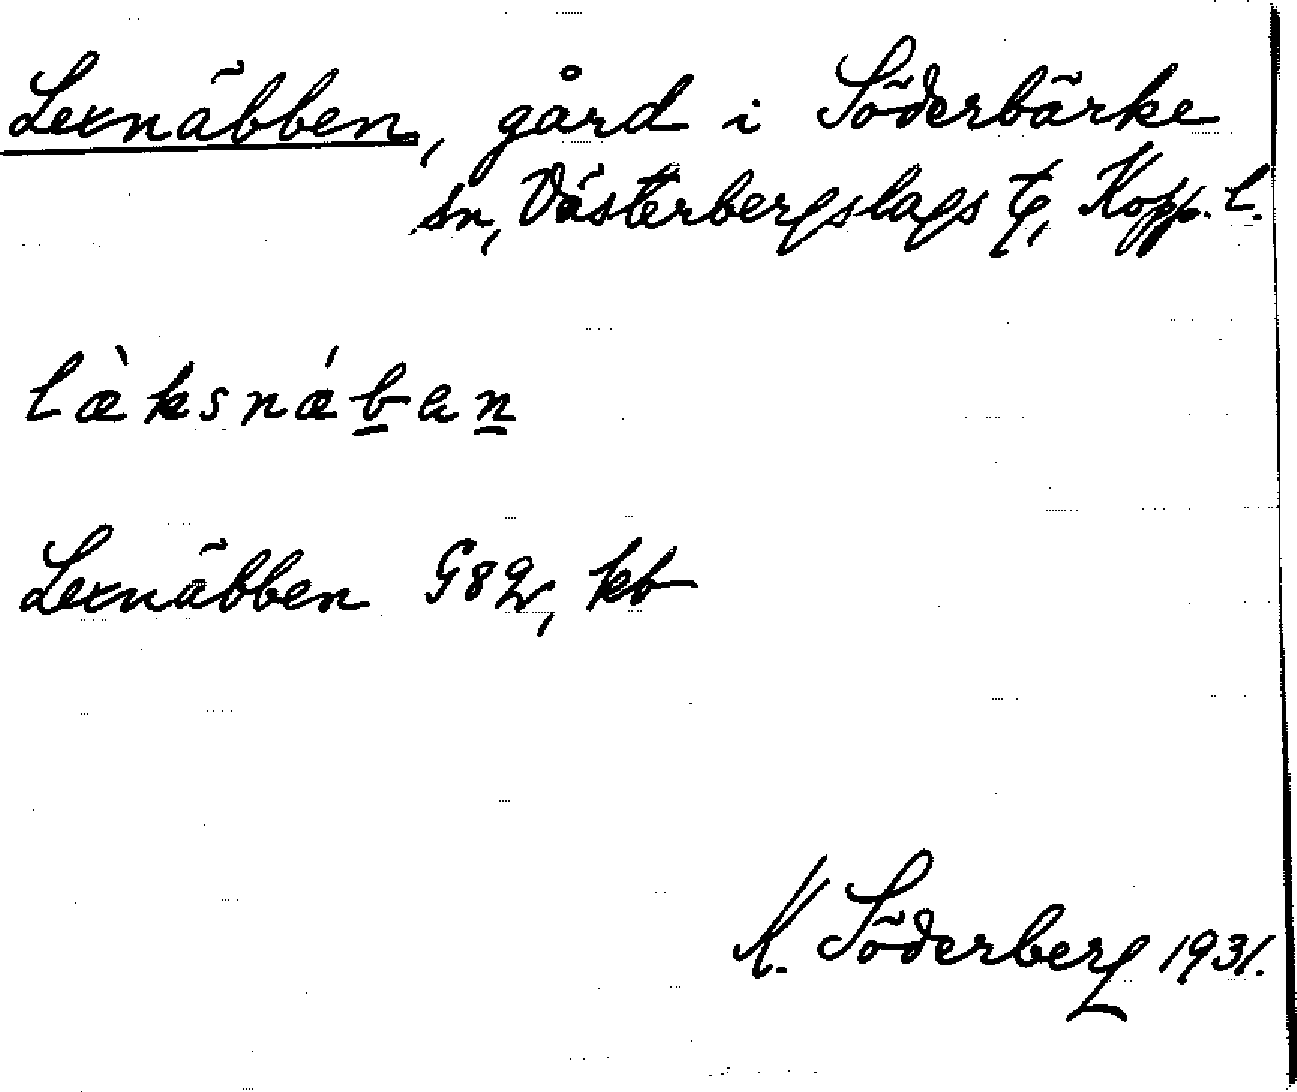 Lexnäbben, gård i Söderbärke
sn, Västerbergslags tg, Kopp. l.
læ̀ksnǽb̲an̲
Lexnäbben G82, kb
K. Söderberg 1931.